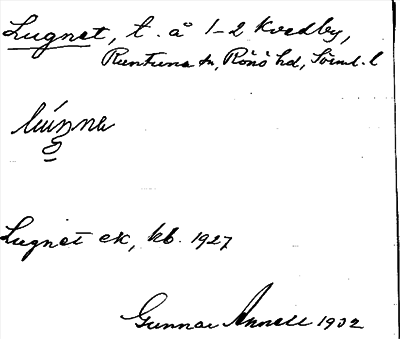 Lugnet, t. å 1-2 Kvedby,
Runtuna sn, Rönö hd, Söml. l
Lugnet ek, kb. 1927
Gunnar Annell 1932